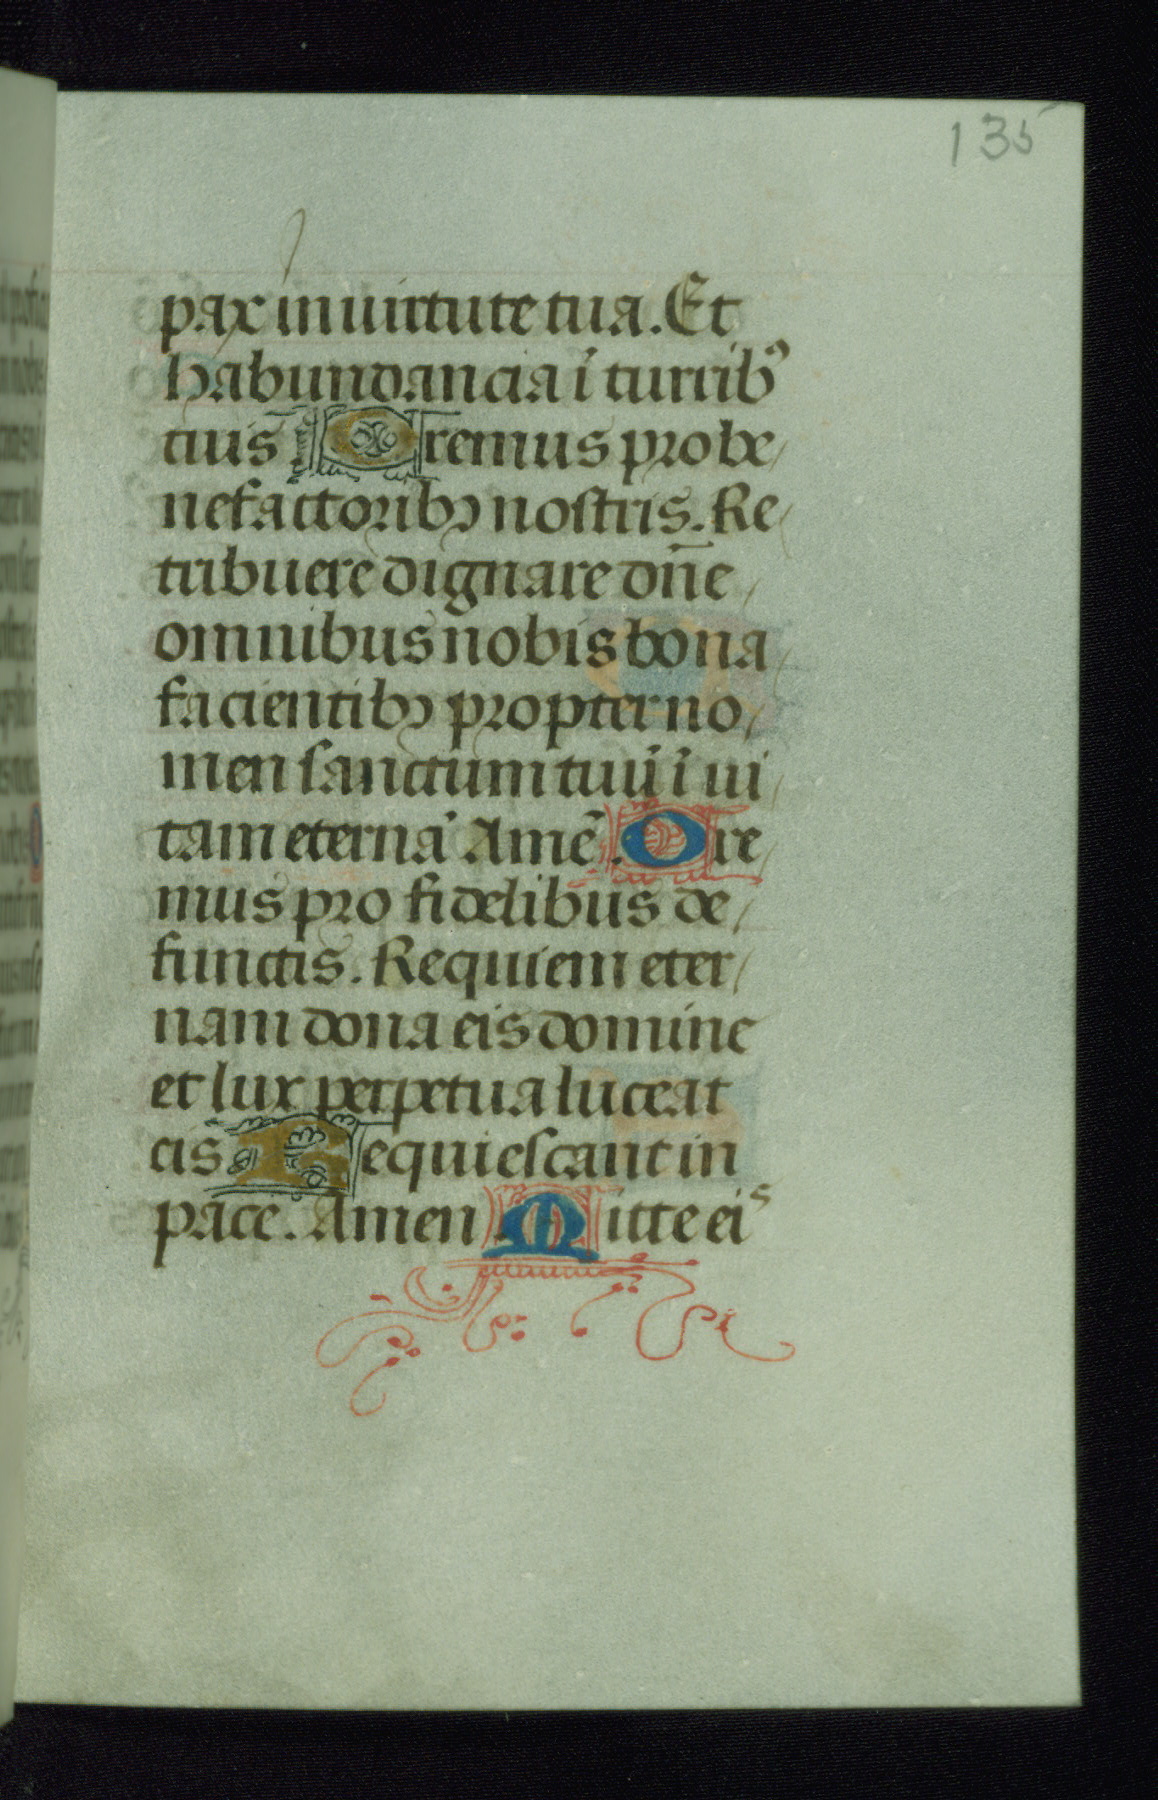 135
pax in uirtute tua. Et
habundancia ī turribꝰ
tuis Oremus pro be
nefactoribꝫ nostris. Re
tribuere dignare dn̄e
omnibus nobis bona
facientibꝫ propter no
men sanctum tuū ī ui
tam eternā Amē. Ore
mus pro fidelibus de
functis. Requiem eter
nam dona eis domine
et lux perpetua luceat
eis Requiescant in
pace. Amen Mitte eis